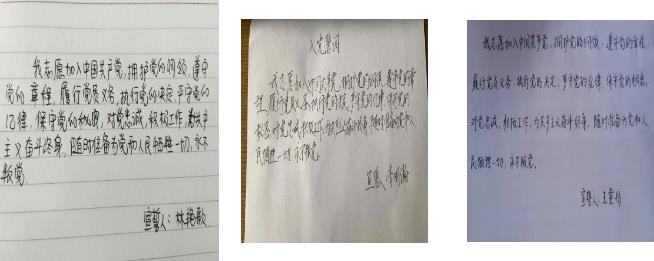 我志愿加入中国共产党，拥护党的纲领，遵守
党的章程，履行党员义务，执行党的决定，严守党的
纪律，保守党的秘密，对党忠诚，积极工作，为共产
主义奋斗终身，随时准备为党和人民牺牲一切，永不
叛党。
宣誓人：林艳歌
入党誓词
我志愿加入中国共产党，拥护党的纲领，遵守党的章
程，履行党员义务，执行党的决定，严守党的纪律，保守党的
秘密，对党忠诚，积极工作，为共产主义奋斗终身，随时准备为党和人
民牺牲一切，永不叛党。
宣誓人
我志愿加入中国共产党，拥护党的纲领，遵守党的章程，
履行党员义务，执行党的决定，严守党的纪律，保守党的秘密，
对党忠诚，积极工作，为共产主义奋斗终身，随时准备为党和人
民牺牲一切，永不叛党。
宣誓人：王